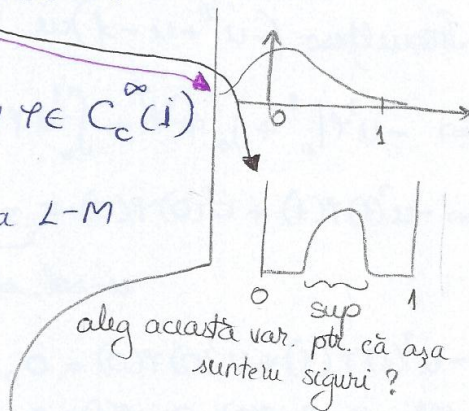 φ ∈ C_c^∞(i)
0 1
a L-M
0 sup 1
aleg această var. ptr. că așa
suntem siguri ?